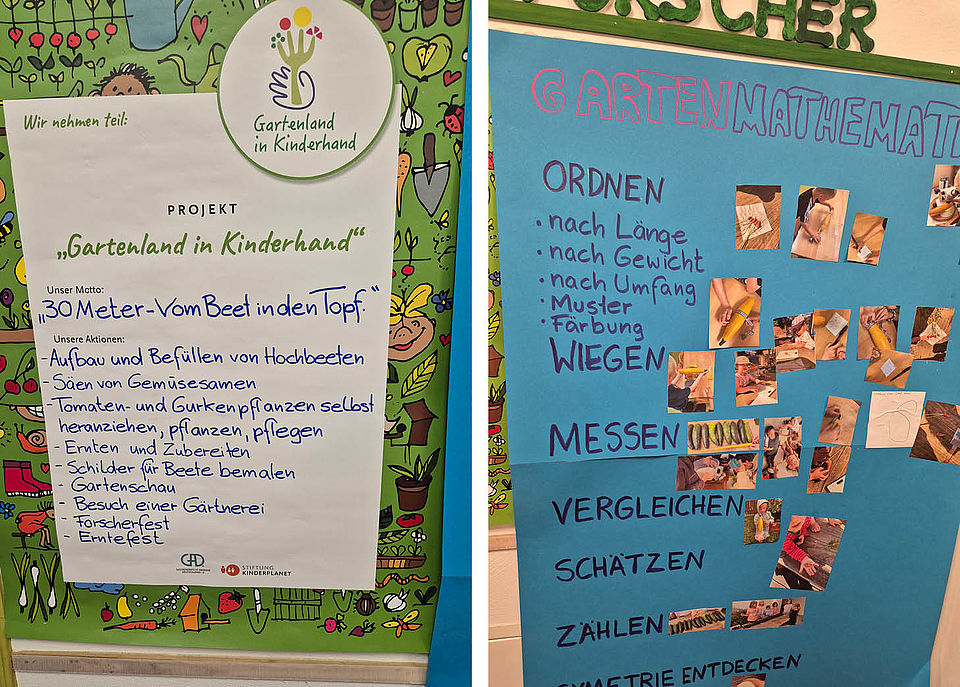 Wir nehmen teil:
Gartenland
in Kinderhand
PROJEKT
„Gartenland in Kinderhand“
Unser Motto:
„30 Meter-Vom Beet in den Topf.“
Unsere Aktionen:
- Aufbau und Befüllen von Hochbeeten
- Säen von Gemüsesamen
- Tomaten- und Gurkenpflanzen selbst
heranziehen, pflanzen, pflegen
- Ernten und Zubereiten
- Schilder für Beete bemalen
- Gartenschau
- Besuch einer Gärtnerei
- Forscherfest
- Erntefest
STIFTUNG
KINDERPLANET
FORSCHER
GARTENMATHEMATI
ORDNEN
• nach Länge
• nach Gewicht
• nach Umfang
• Muster
• Färbung
WIEGEN
MESSEN
VERGLEICHEN
SCHÄTZEN
ZÄHLEN
SYMETRIE ENTDECKEN